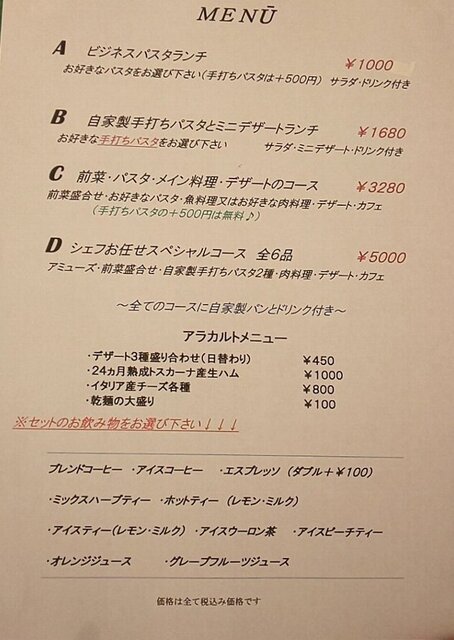 MENŪ
A ビジネスパスタランチ ￥1000
お好きなパスタをお選び下さい(手打ちパスタは＋500円) サラダ・ドリンク付き
B 自家製手打ちパスタとミニデザートランチ ￥1680
お好きな手打ちパスタをお選び下さい サラダ・ミニデザート・ドリンク付き
C 前菜・パスタ・メイン料理・デザートのコース ￥3280
前菜盛合せ・お好きなパスタ・魚料理又はお好きな肉料理・デザート・カフェ
(手打ちパスタの＋500円は無料♪)
D シェフお任せスペシャルコース 全6品 ￥5000
アミューズ・前菜盛合せ・自家製手打ちパスタ2種・肉料理・デザート・カフェ
～全てのコースに自家製パンとドリンク付き～
アラカルトメニュー
・デザート3種盛り合わせ(日替わり) ￥450
・24ヵ月熟成トスカーナ産生ハム ￥1000
・イタリア産チーズ各種 ￥800
・乾麺の大盛り ￥100
※セットのお飲み物をお選び下さい↓↓↓
ブレンドコーヒー ・アイスコーヒー ・エスプレッソ (ダブル＋￥100)
・ミックスハーブティー ・ホットティー (レモン・ミルク)
・アイスティー(レモン・ミルク) ・アイスウーロン茶 ・アイスピーチティー
・オレンジジュース ・グレープフルーツジュース
価格は全て税込み価格です